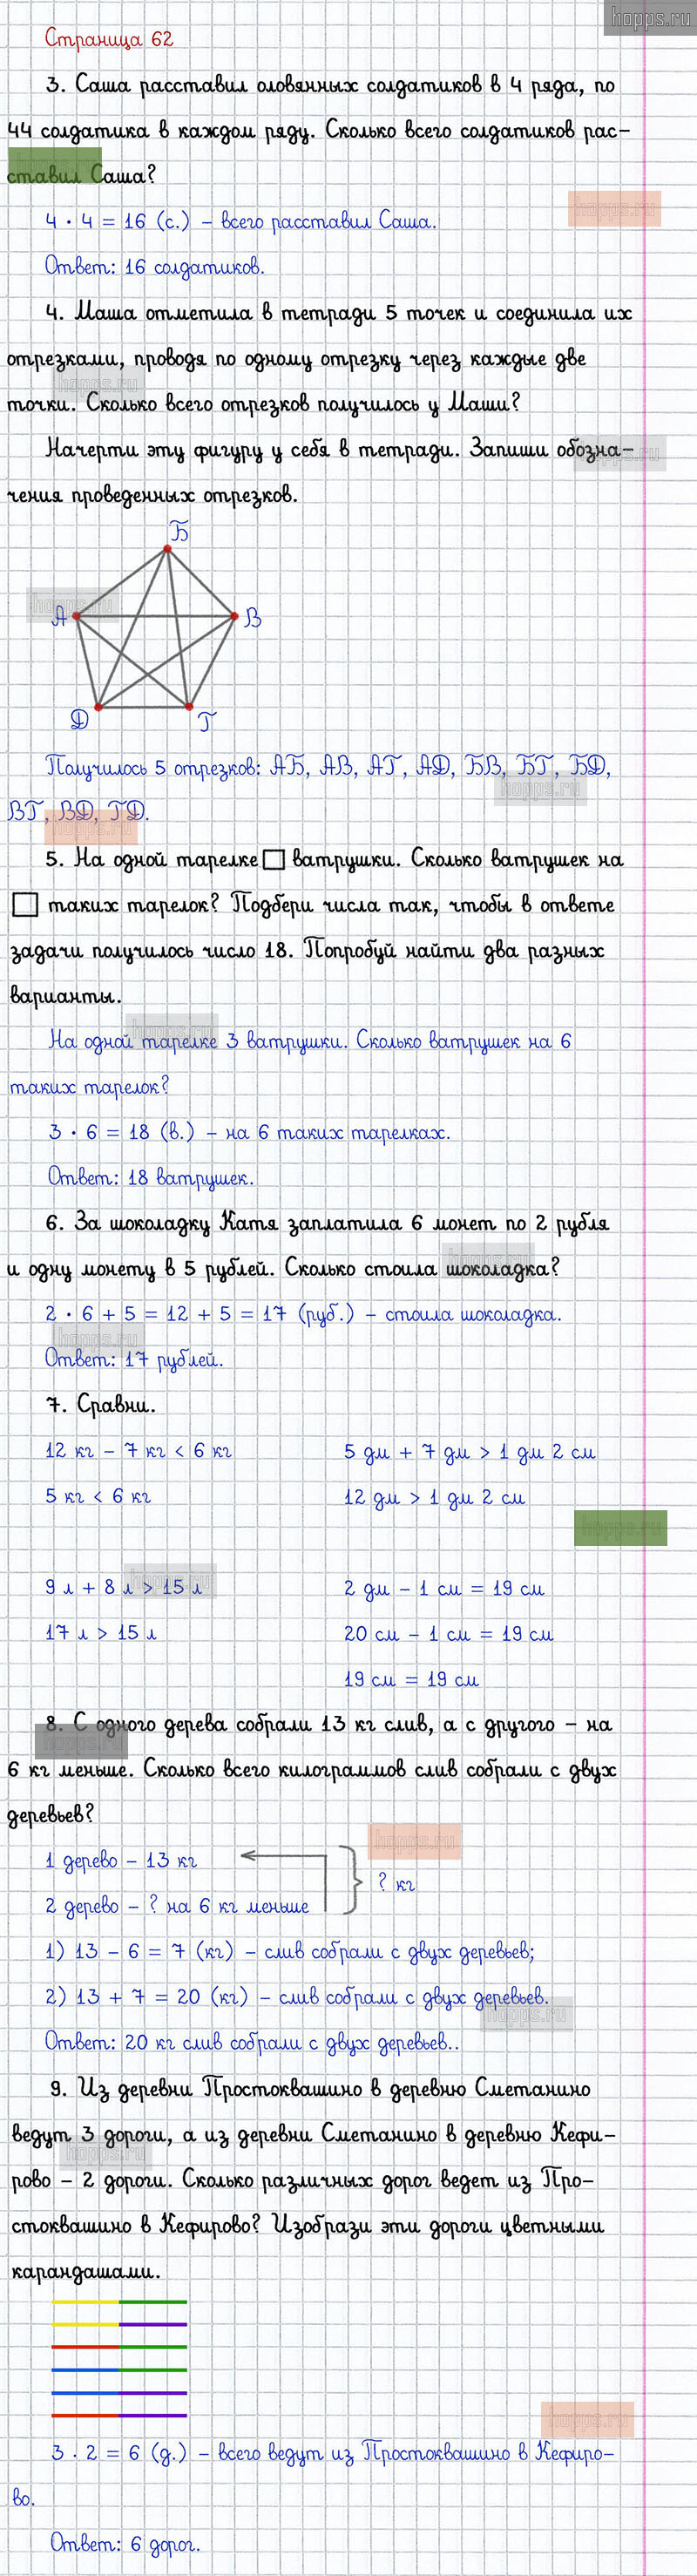 hopps.ru
Страница 62
3. Саша расставил оловянных солдатиков в 4 ряда, по
44 солдатика в каждом ряду. Сколько всего солдатиков рас-
ставил Саша?
hopps.ru
4 · 4 = 16 (с.) – всего расставил Саша.
Ответ: 16 солдатиков.
4. Маша отметила в тетради 5 точек и соединила их
отрезками, проводя по одному отрезку через каждые две
hopps.ru
точки. Сколько всего отрезков получилось у Маши?
Начерти эту фигуру у себя в тетради. Запиши обозна-
hopps.ru
чения проведенных отрезков.
Б
hopps.ru
А В
Д Г
Получилось 5 отрезков: АБ, АВ, АГ, АД, БВ, БГ, БД,
hopps.ru
ВГ, ВД, ГД.
hopps.ru
5. На одной тарелке □ ватрушки. Сколько ватрушек на
□ таких тарелок? Подбери числа так, чтобы в ответе
задачи получилось число 18. Попробуй найти два разных
варианты.
hopps.ru
На одной тарелке 3 ватрушки. Сколько ватрушек на 6
таких тарелок?
3 · 6 = 18 (в.) – на 6 таких тарелках.
Ответ: 18 ватрушек.
6. За шоколадку Катя заплатила 6 монет по 2 рубля
hopps.ru
и одну монету в 5 рублей. Сколько стоила шоколадка?
2 · 6 + 5 = 12 + 5 = 17 (руб.) – стоила шоколадка.
hopps.ru
Ответ: 17 рублей.
7. Сравни.
12 кг – 7 кг < 6 кг 5 дм + 7 дм > 1 дм 2 см
5 кг < 6 кг 12 дм > 1 дм 2 см
hopps.ru
hopps.ru
9 л + 8 л > 15 л 2 дм – 1 см = 19 см
17 л > 15 л 20 см – 1 см = 19 см
19 см = 19 см
8. С одного дерева собрали 13 кг слив, а с другого – на
6 кг меньше. Сколько всего килограммов слив собрали с двух
деревьев?
hopps.ru
1 дерево – 13 кг
? кг
2 дерево – ? на 6 кг меньше
1) 13 – 6 = 7 (кг) – слив собрали с двух деревьев;
2) 13 + 7 = 20 (кг) – слив собрали с двух деревьев.
hopps.ru
Ответ: 20 кг слив собрали с двух деревьев..
9. Из деревни Простоквашино в деревню Сметанино
ведут 3 дороги, а из деревни Сметанино в деревню Кефи-
hopps.ru
рово – 2 дороги. Сколько различных дорог ведет из Про-
стоквашино в Кефирово? Изобрази эти дороги цветными
карандашами.
hopps.ru
3 · 2 = 6 (д.) – всего ведут из Простоквашино в Кефиро-
во.
Ответ: 6 дорог.